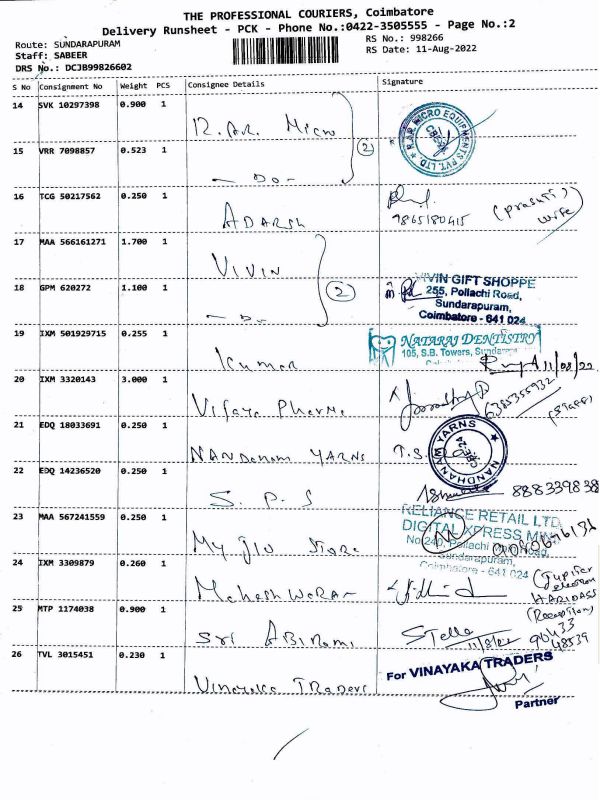 THE PROFESSIONAL COURIERS, Coimbatore
Delivery Runsheet - PCK - Phone No.:0422-3505555 - Page No.:2
Route: SUNDARAPURAM
RS No.: 998266
Staff: SABEER
RS Date: 11-Aug-2022
DRS No.: DCJB99826602
S No Consignment No Weight PCS Consignee Details Signature
14 SVK 10297398 0.900 1
R.AR. Micro
R.AR MICRO EQUIPMENTS PVT. LTD.
2
15 VRR 7098857 0.523 1
- Do -
16 TCG 50217562 0.250 1
ADARSH
9865180415
wife
17 MAA 566161271 1.700 1
VIVIN
18 GPM 620272 1.100 1
- Do -
2
VIVIN GIFT SHOPPE
255, Pollachi Road,
Sundarapuram,
Coimbatore - 641 024
19 IXM 501929715 0.255 1
Kumar
NATARAJ DENTISTRY
105, S.B. Towers,
11/08/22
20 IXM 3320143 3.000 1
Vijaya Pharma
6385355932
(Staff)
21 EDQ 18033691 0.250 1
NANDANAM YARNS
T.S.
NANDHANAM YARNS
CBE-24
22 EDQ 14236520 0.250 1
S. P. S
888339838
23 MAA 567241559 0.250 1
My Jio Store
RELIANCE RETAIL LTD
DIGITAL XPRESS MINI
No 240, Pollachi Main Road,
Sundarapuram,
Coimbatore - 641 024
24 IXM 3309879 0.260 1
Maheshwaran
(Jupiter
HARIDASS
25 MTP 1174038 0.900 1
Sri ABIRAMI
Stella
11/8/22
(Reception)
90433
48539
26 TVL 3015451 0.230 1
Vinayaka Traders
For VINAYAKA TRADERS
Partner